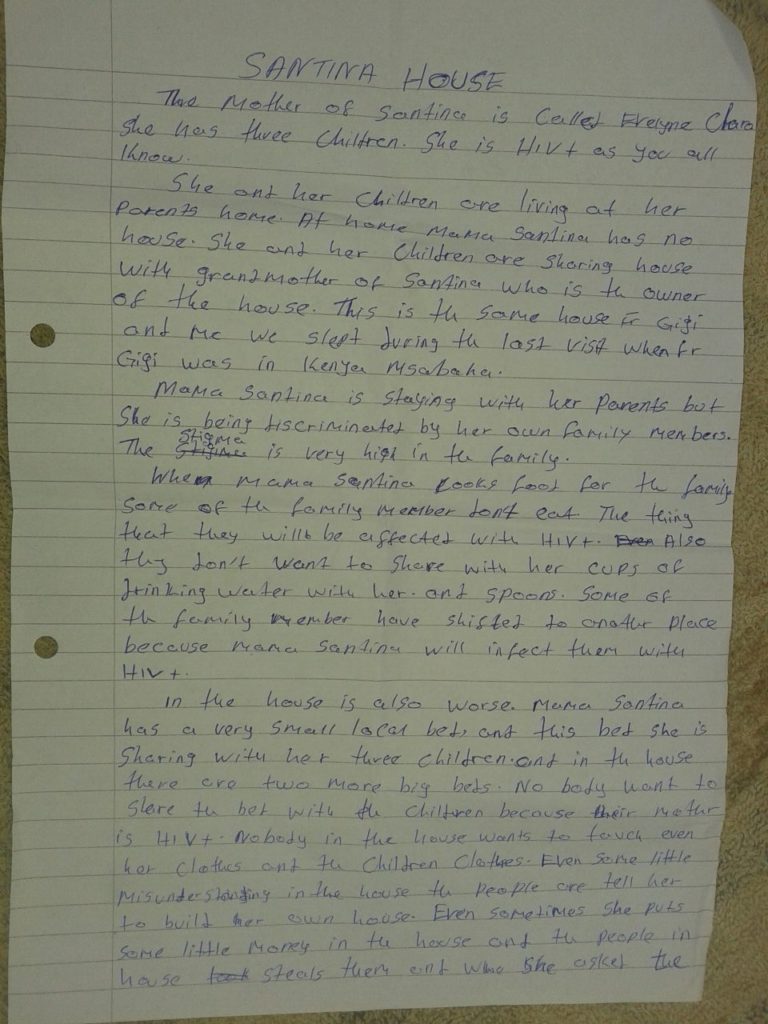 SANTINA HOUSE
The Mother of Santina is Called Evelyne Chara
She has three Children. She is HIV+ as you all
Know.
She and her Children are living at her
Parents home. At home Mama Santina has no
house. She and her Children are Sharing house
With grandmother of Santina who is th owner
of the house. This is th same house Fr Gigi
and Me we slept during th last visit when Fr
Gigi was in Kenya Msabaha.
Mama Santina is staying with her Parents but
She is being discriminated by her own family members.
The Stigma is very high in th family.
When Mama Santina Cooks food for th family
Some of th family member dont eat The thing
that they willt be affected with HIV+. Also
thy don't want to share with her cups of
drinking water with her. and spoons. Some of
th family member have shifted to another place
because mama Santina will infect them with
HIV+.
In the house is also worse. Mama Santina
has a very small local bed, and this bed she is
Sharing with her three children. and in th house
there are two more big beds. No body want to
Share th bed with th Children because their mother
is HIV+. Nobody in the house wants to touch even
her Clothes and th Children Clothes. Even some little
Misunderstanding in the house th people are tell her
to build her own house. Even sometimes she puts
some little money in th house and th people in
house steals them and she asked the